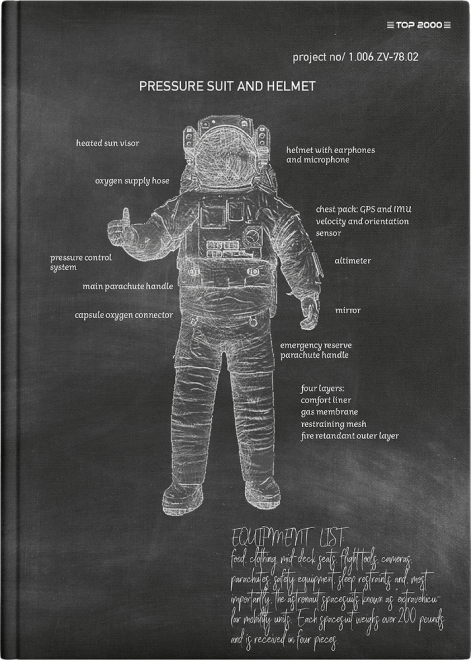 TOP 2000
project no/ 1.006.ZV-78.02
PRESSURE SUIT AND HELMET
heated sun visor
helmet with earphones
and microphone
oxygen supply hose
chest pack: GPS and IMU
velocity and orientation
sensor
pressure control
system
altimeter
main parachute handle
capsule oxygen connector
mirror
emergency reserve
parachute handle
four layers:
comfort liner
gas membrane
restraining mesh
fire retandant outer layer
EQUIPMENT LIST
food, clothing, mid-deck seats, flight tools, cameras,
parachutes, safety equipment, sleep restraints and, most
importantly, the astronaut spacesuits known as "extravehicu-
lar mobility units. Each spacesuit weighs over 200 pounds
and is received in four pieces.